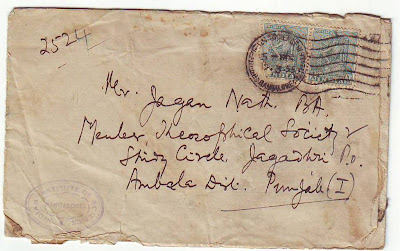 2524
Mr. Jagan Nath. BA.
Member, Theosophical Society &
Study Circle, Jagadhri Po.
Ambala Dist. Punjab (I)